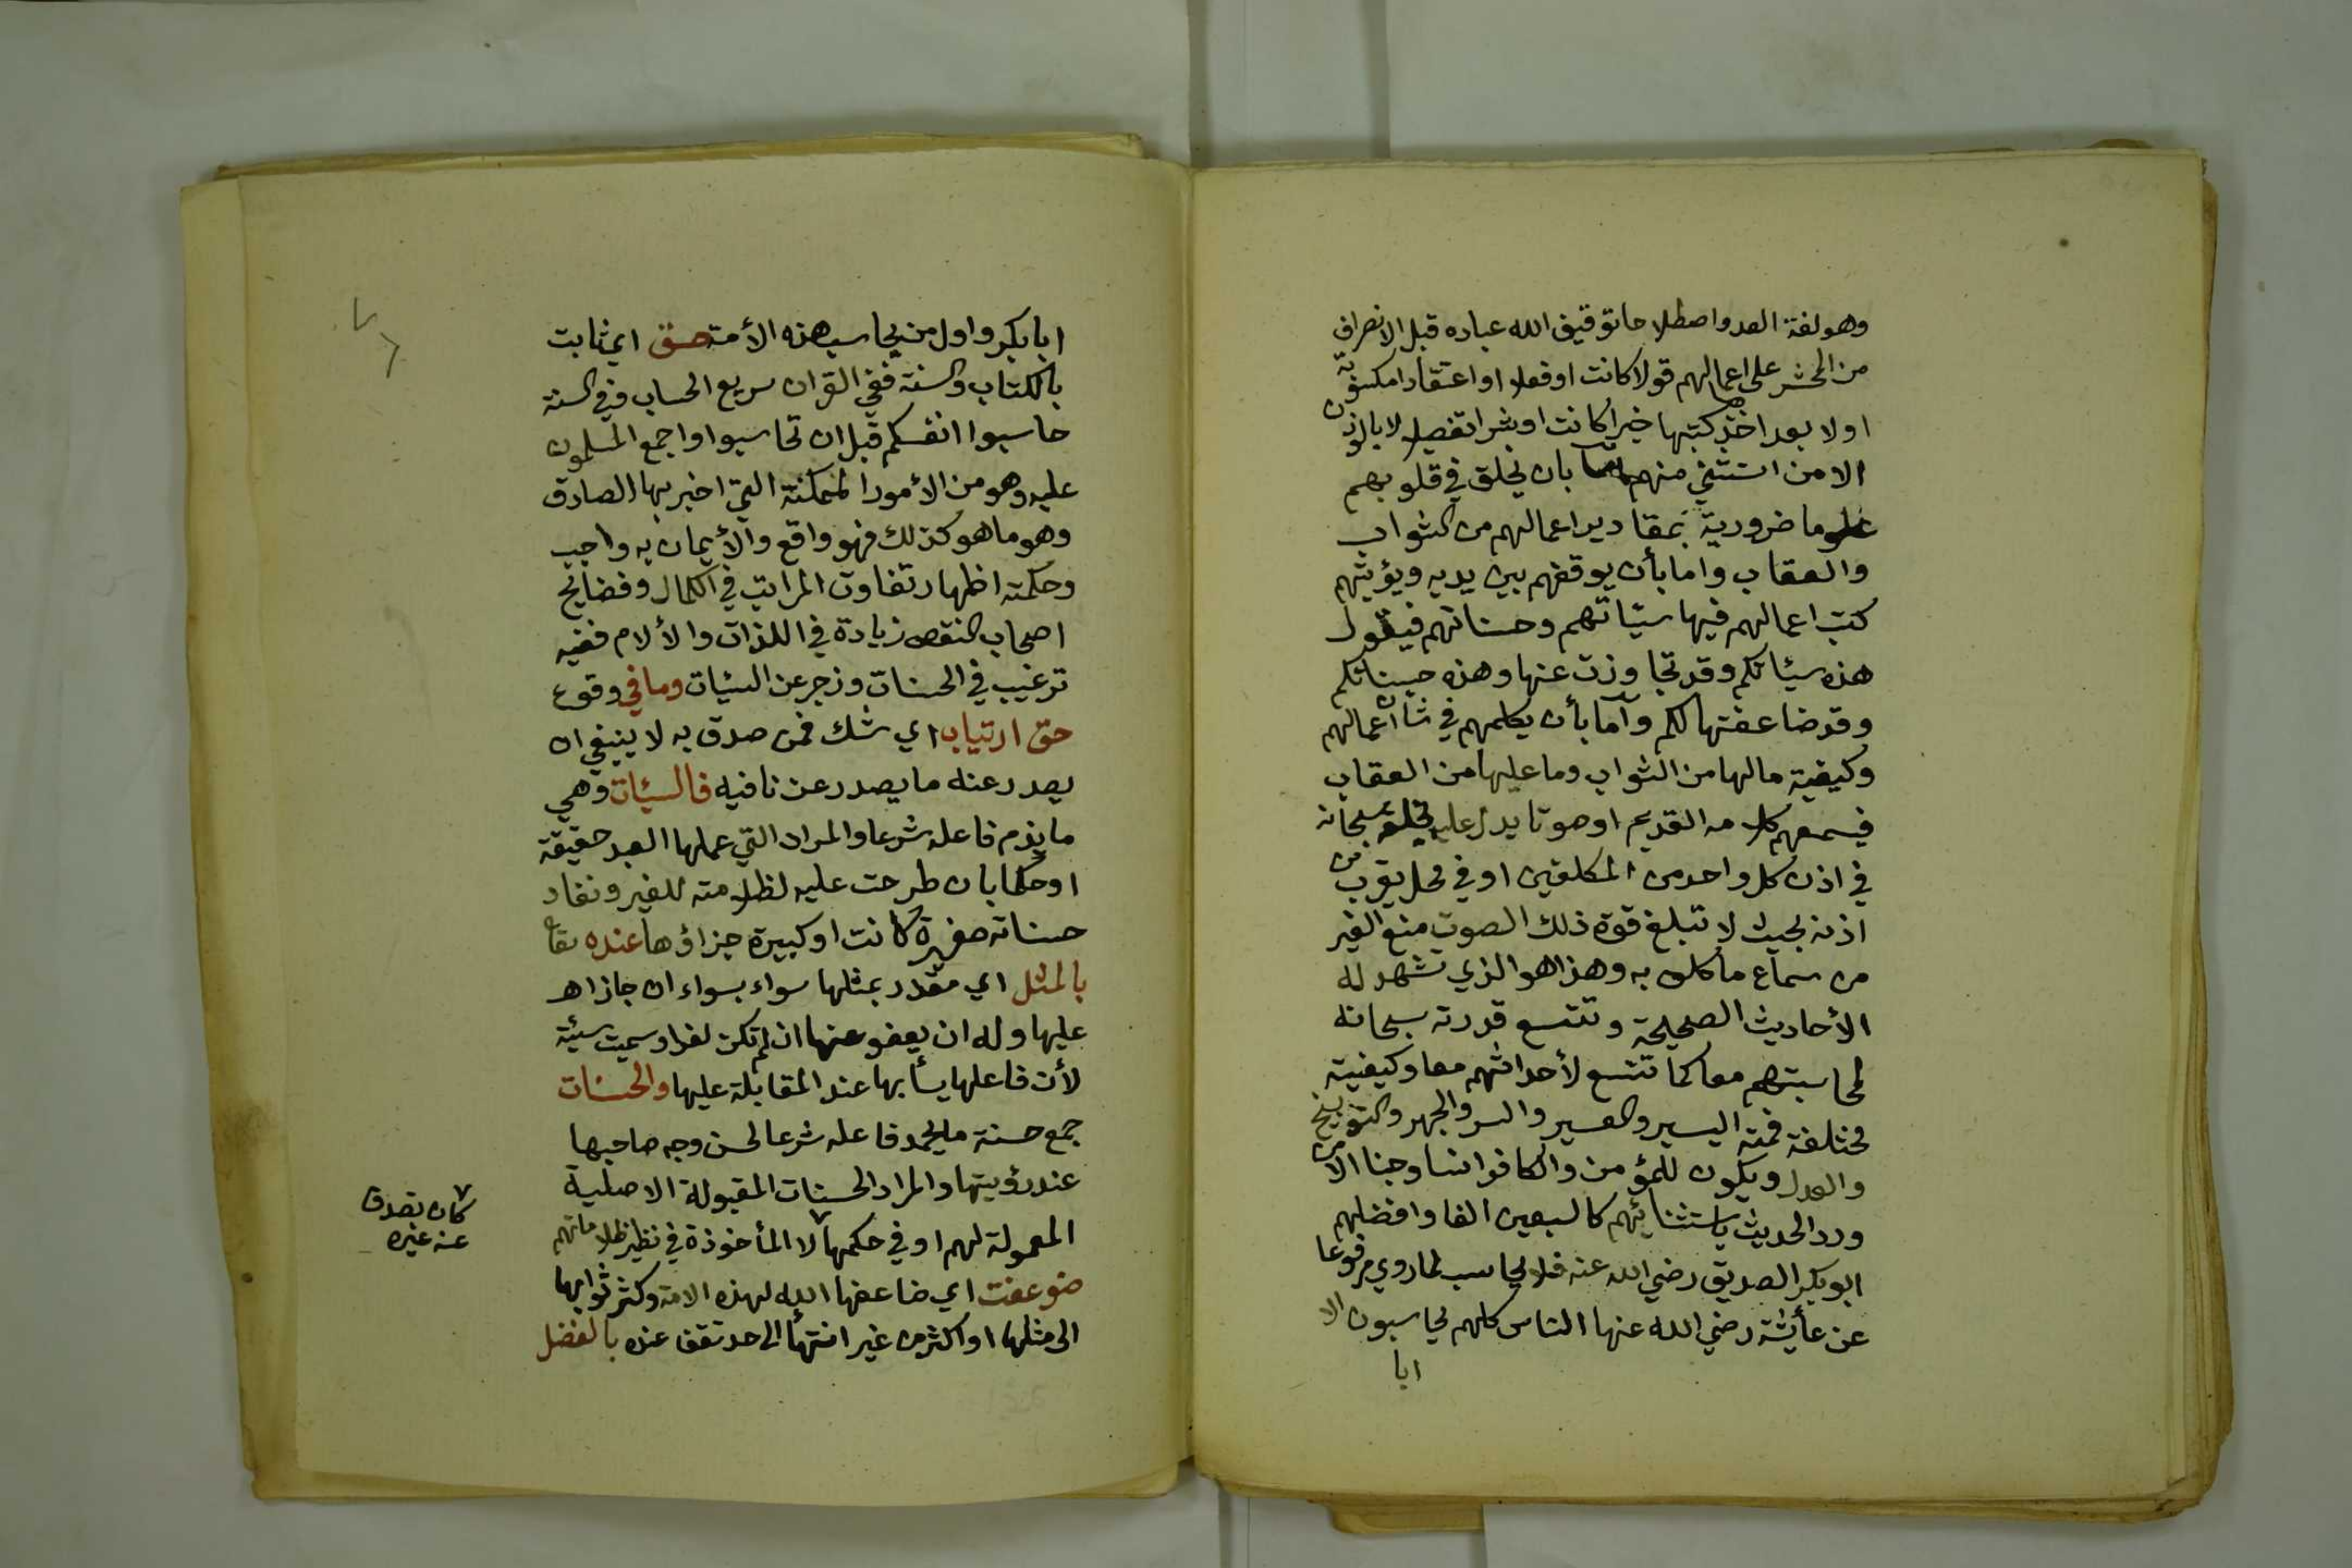 وهو لغة العد واصطلاحا توقيف الله عباده قبل الانصراف
من الحشر على اعمالهم قولا كانت او فعلا او اعتقادا مكسوبة
اولا بعد اخذ كتبها خيرا كانت او شرا تفصيلا لا بالوزن
الا من استثني منهم بان يخلق في قلوبهم
علوما ضرورية بمقادير اعمالهم من الثواب
والعقاب واما بأن يوقفهم بين يديه ويؤتيهم
كتب اعمالهم فيها سيئاتهم وحسناتهم فيقول
هذه سيئاتكم وقد تجاوزت عنها وهذه حسناتكم
وقد ضاعفتها لكم وأما بأن يكلمهم في شان اعمالهم
وكيفية مالها من الثواب وما عليها من العقاب
فيسمعهم كلامه القديم او صوتا يدل عليه يخلقه سبحانه
في اذن كل واحد من المكلفين او في محل يقرب من
اذنه بحيث لا تبلغ قوة ذلك الصوت منع الغير
من سماع ما كلف به وهذا هو الذي تشهد له
الأحاديث الصحيحة وتتسع قدرته سبحانه
لمحاسبتهم معا كما تتسع لأحداثهم معا وكيفيته
مختلفة فمنه اليسير والعسير والسر والجهر والتوبيخ
والعدل ويكون للمؤمن والكافر انسا وجنا الا من
ورد الحديث باستثنائهم كالسبعين الفا وافضلهم
ابو بكر الصديق رضي الله عنه فلا يحاسب لما روي مرفوعا
عن عائشة رضي الله عنها الناس كلهم يحاسبون الا
ابا
ابا بكر واول من يحاسب هذه الأمة حق اي ثابت
بالكتاب والسنة ففي القران سريع الحساب وفي السنة
حاسبوا انفسكم قبل ان تحاسبوا واجمع المسلمون
عليه وهو من الأمور الممكنة التي اخبر بها الصادق
وهو ما هو كذلك فهو واقع والأيمان به واجب
وحكمته اظهار تفاوت المراتب في الكمال وفضايح
اصحاب النقص زيادة في اللذات والألام ففيه
ترغيب في الحسنات وزجر عن السيئات وما في وقوع
حق ارتياب اي شك فمن صدق به لا ينبغي ان
يصدر عنه ما يصدر عن نافيه فالسيئات وهي
ما يذم فاعله شرعا والمراد التي عملها العبد حقيقة
او حكما بان طرحت عليه لظلامته للغير ونفاد
حسناته صغيرة كانت او كبيرة جزاؤها عنده تعا
بالمثل اي مقدر بمثلها سواء بسواء ان جازاه
عليها وله ان يعفو عنها ان لم تكن كفرا وسميت سيئة
لأن فاعلها يسأ بها عند المقابلة عليها والحسنات
جمع حسنة ما يحمد فاعله شرعا لحسن وجه صاحبها
عند رؤيتها والمراد الحسنات المقبولة الاصلية
المعمولة لهم او في حكمها لا المأخوذة في نظير ظلاماتهم
كان تصدق
عنه غيره
ضوعفت اي ضاعفها الله لهذه الامة وكثر ثوابها
الى مثلها او اكثر من غير انتهأ الى حد تقف عنده بالفضل